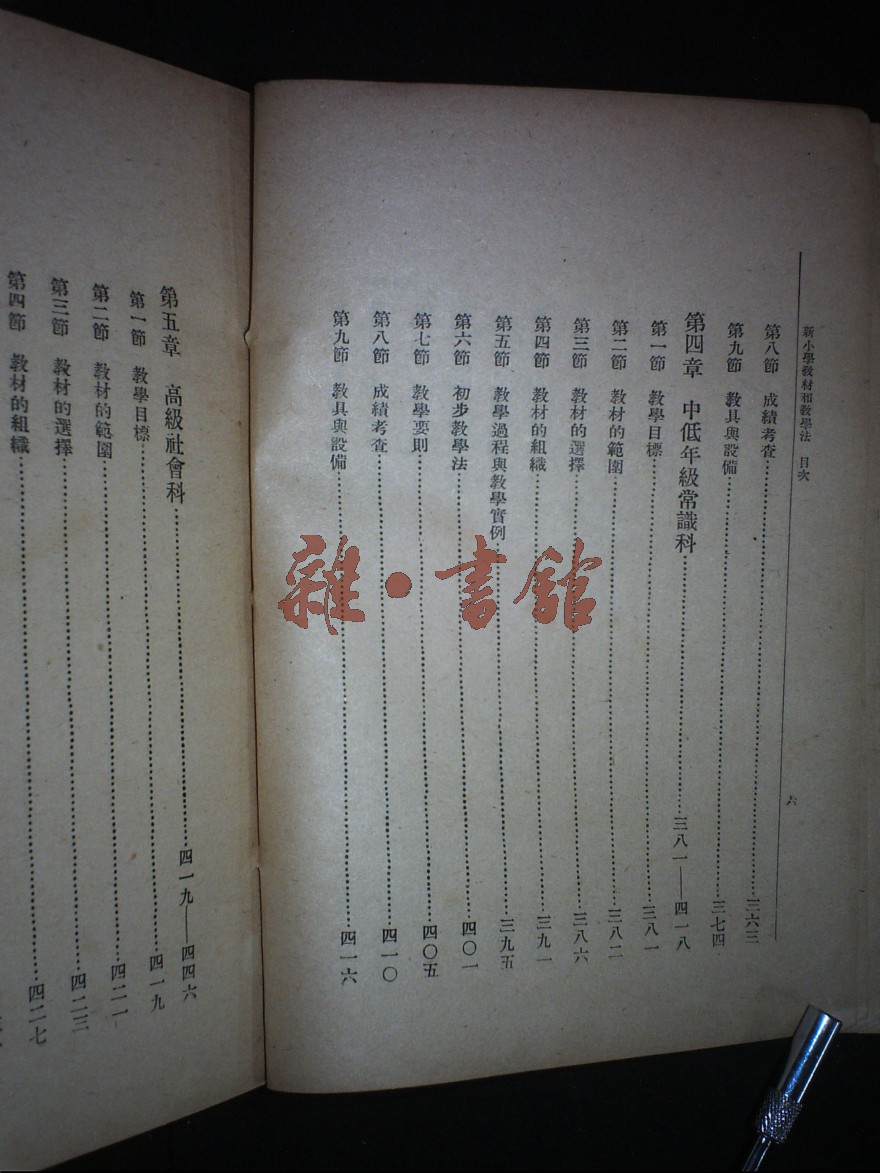 新小學教材和教學法　目次
六
第八節　成績考查…………三六三
第九節　教具與設備…………三七四
第四章　中低年級常識科…………三八一——四一八
第一節　教學目標…………三八一
第二節　教材的範圍…………三八二
第三節　教材的選擇…………三八六
第四節　教材的組織…………三九一
第五節　教學過程與教學實例…………三九五
第六節　初步教學法…………四〇一
第七節　教學要則…………四〇五
第八節　成績考查…………四一〇
第九節　教具與設備…………四一六
第五章　高級社會科…………四一九——四四六
第一節　教學目標…………四一九
第二節　教材的範圍…………四二一
第三節　教材的選擇…………四二三
第四節　教材的組織…………四二七
雜·書館